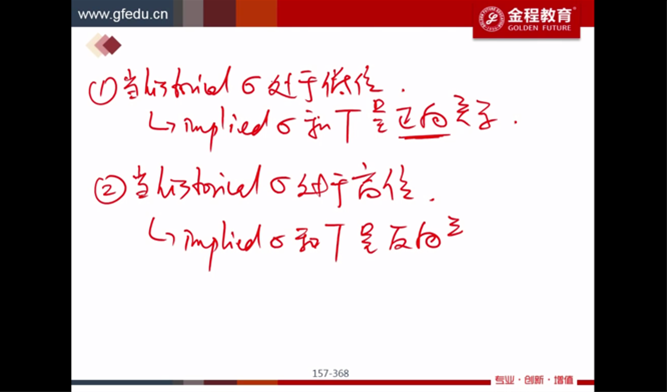 www.gfedu.cn
金程教育
GOLDEN FUTURE
①当historical σ处于低位.
↳implied σ和T是正向关系.
②当historical σ处于高位.
↳implied σ和T是反向关
157-368
专业·创新·增值